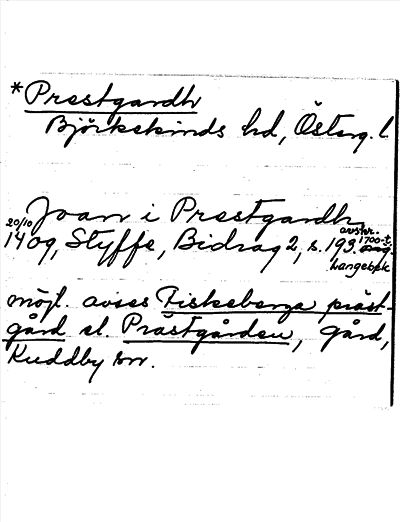 *Prestgardh
Björkekinds hd, Österg. l
Joan i Prestgardh
20/10 1409, Styffe, Bidrag 2, s. 193. avskr. 1700-t.
Langebek
möjl. avses Fiskeberga präst-
gård el. Prästgården, gård,
Kuddby sn.